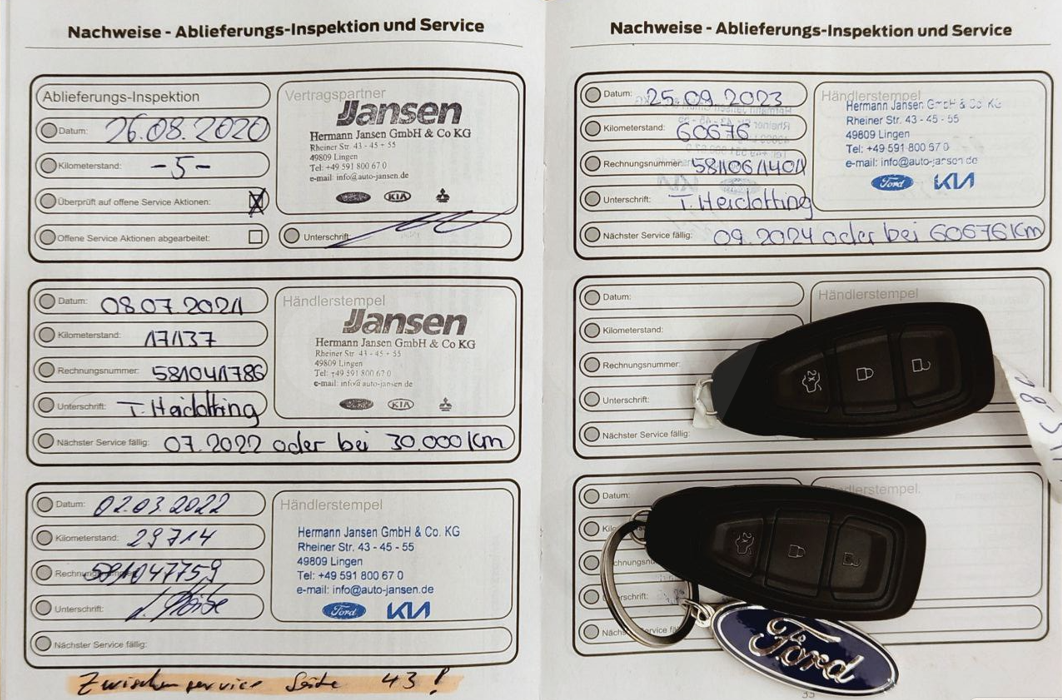 Nachweise - Ablieferungs-Inspektion und Service
Ablieferungs-Inspektion
Datum: 26.08.2020
Kilometerstand: -5-
Überprüft auf offene Service Aktionen:
Offene Service Aktionen abgearbeitet:
Vertragspartner
Jansen
Hermann Jansen GmbH & Co KG
Rheiner Str. 43 - 45 + 55
49809 Lingen
Tel: +49 591 800 67 0
e-mail: info@auto-jansen.de
Ford KIA
Unterschrift:
Datum: 08.07.2021
Kilometerstand: 17137
Rechnungsnummer: 581041786
Unterschrift: T. Heidotting
Händlerstempel
Jansen
Hermann Jansen GmbH & Co KG
Rheiner Str. 43 - 45 + 55
49809 Lingen
Tel.: +49 591 800 67 0
e-mail: info@auto-jansen.de
Ford KIA
Nächster Service fällig: 07.2022 oder bei 30.000 Km
Datum: 02.03.2022
Kilometerstand: 29714
Rechnungsnummer: 581047759
Unterschrift:
Händlerstempel
Hermann Jansen GmbH & Co. KG
Rheiner Str. 43 - 45 - 55
49809 Lingen
Tel: +49 591 800 67 0
e-mail: info@auto-jansen.de
Ford KIA
Nächster Service fällig:
Zwischenservice Seite 43!
Nachweise - Ablieferungs-Inspektion und Service
Datum: 25.09.2023
Kilometerstand: 60676
Rechnungsnummer: 581061401
Unterschrift: T. Heidotting
Händlerstempel
Hermann Jansen GmbH & Co. KG
Rheiner Str. 43 - 45 - 55
49809 Lingen
Tel: +49 591 800 67 0
e-mail: info@auto-jansen.de
Ford KIA
Nächster Service fällig: 09.2024 oder bei 60676 Km
Datum:
Kilometerstand:
Rechnungsnummer:
Unterschrift:
Nächster Service fällig:
Händlerstempel
Datum:
Händlerstempel
Ford